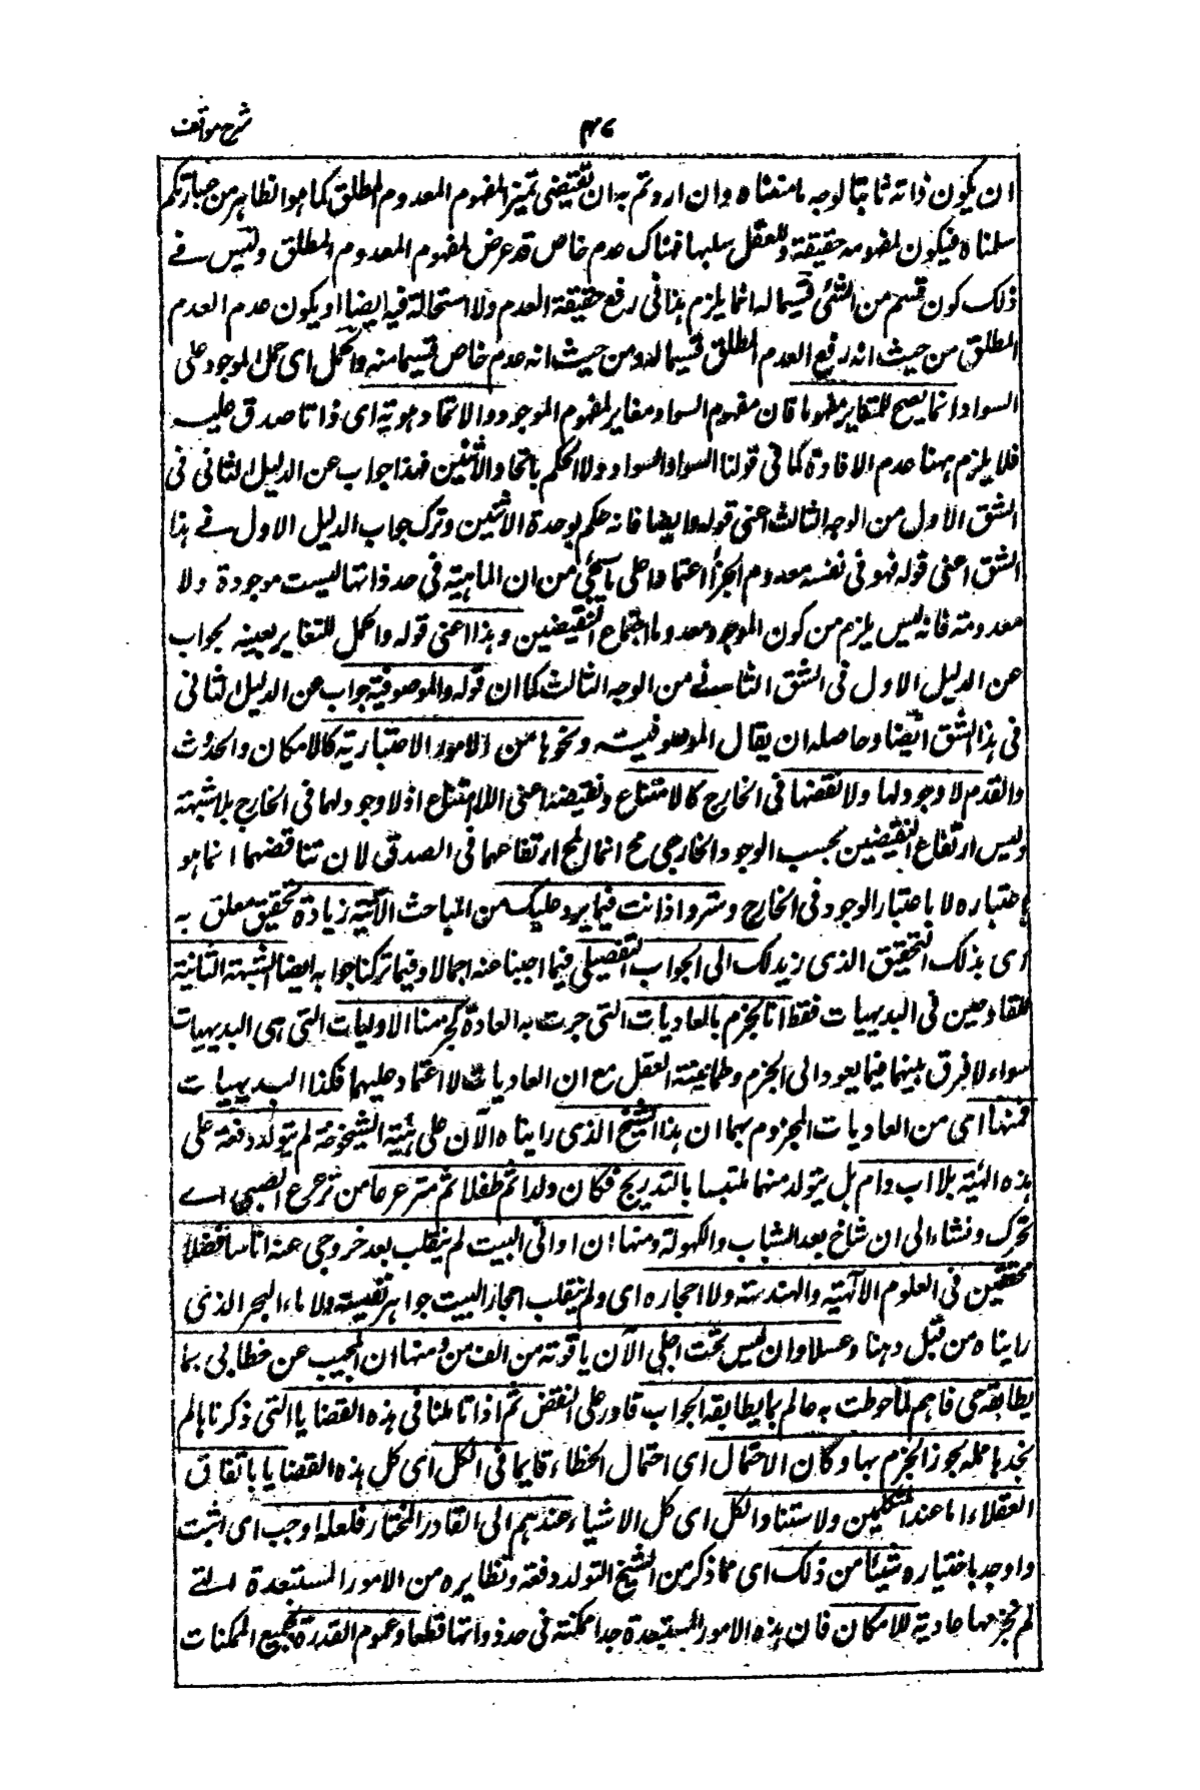 شرح مواقف
٤٧
ان يكون ذاته ثابتا لوجه ما منعناه وان اردتم به ان تقتضى تميز المفهوم المعدوم المطلق كما هو الظاهر من عبارتكم
سلمناه فيكون لمفهومه حقيقة وللعقل سلبها فهناك عدم خاص قد عرض لمفهوم المعدوم المطلق وليس فے
ذلك كون قسم من الشئ قسيما له انما يلزم هنا فى رفع حقيقة العدم ولا استحالة فيه ايضا او يكون عدم العدم
المطلق من حيث انه رفع العدم المطلق قسيما له ومن حيث انه عدم خاص قسيما منه والحمل اى حمل الموجود على
السواد انما يصح للتغاير مفهوما فان مفهوم السواد مغاير لمفهوم الموجود والاتحاد هوية اى ذاتا صدق عليه
فلا يلزم ههنا عدم الافادة كما فى قولنا السواد السواد ولا الحكم باتحاد الاثنين فهذا جواب عن الدليل الثانى فى
الشق الاول من الوجه الثالث اعنى قوله وايضا فانه حكم بوحدة الاثنين وترك جواب الدليل الاول فے هذا
الشق اعنى قوله فهو فى نفسه معدوم الجزأ اعتمادا على ما سيجئ من ان الماهية فى حد ذاتها ليست موجودة ولا
معدومة فانه ليس يلزم من كون الموجود معدوما اجتماع النقيضين وهذا اعنى قوله والحمل للتغاير بعينه لجواب
عن الدليل الاول فى الشق الثانے من الوجه الثالث كما ان قوله والموصوفية جواب عن الدليل الثانى
فى هذا الشق ايضا وحاصله ان يقال الموصوفية ونحوها من الامور الاعتبارية كالامكان والحدوث
والقدم لا وجود لها ولا نقيضها فى الخارج كالامتناع ونقيضه اعنى اللا امتناع اذ لا وجود لهما فى الخارج بلا شبهة
وليس ارتفاع النقيضين بحسب الوجود الخارجى مح انما المح ارتفاعهما فى الصدق لان تناقضهما انما هو
باعتباره لا باعتبار الوجود فى الخارج وستزداد انت فيما يرد عليك من المباحث الآتية زيادة تحقيق معلق به
اى بذلك التحقيق الذى زيد لك الى الجواب التفصيلى فيما اجبنا عنه اجمالا وفيما تركنا جوابه ايضا الشبهة الثانية
للقادحين فى البديهيات فقط انا نجزم بالعاديات التى جرت به العادة كجزمنا الاوليات التى هى البديهيات
سواء لا فرق بينهما فيما يعود الى الجزم وطمانينة العقل مع ان العاديات لا اعتماد عليها فكذا البديهيات
فمنها اى من العاديات المجزوم بها ان هذا الشيخ الذى رايناه الآن على هيئة الشيخوخة لم يتولد دفعة على
هذه الهيئة بلا اب وام بل يتولد منهما ملتبسا بالتدريج فكان ولدا ثم طفلا ثم مترعرعا من ترعرع الصبى اے
تحرك ونشاء الى ان شاخ بعد الشباب والكهولة ومنها ان اوانى البيت لم ينقلب بعد خروجى عنه اناسا فضلاء
محققين فى العلوم الالهية والهندسة ولا احجاره اى ولم ينقلب احجار البيت جواهر نفيسة ولا ماء البحر الذى
رايناه من قبل دهنا وعسلا وان ليس تحت رجلى الآن ياقوتة من الف من ومنها ان المجيب عن خطابى بما
يطابقه حى فاهم لما خوطبت به عالم بما يطابقه الجواب قادر على النقض ثم اذا تاملنا فى هذه القضايا التى ذكرناها لم
نجدها مما يجوز الجزم بها وكان الاحتمال اى احتمال الخطاء قايما فى الكل اى كل هذه القضايا باتفاق
العقلاء اما عند المتكلمين ولاستناد الكل اى كل الاشياء عندهم الى القادر المختار فلعله اوجب اى اثبت
واوجد باختياره شيئا من ذلك اى مما ذكر من الشيخ المتولد دفعة ونظايره من الامور المستبعدة التے
لم نجزمها عادية للامكان فان هذه الامور المستبعدة جدا ممكنة فى حد ذواتها قطعا وعموم القدرة لجميع الممكنات